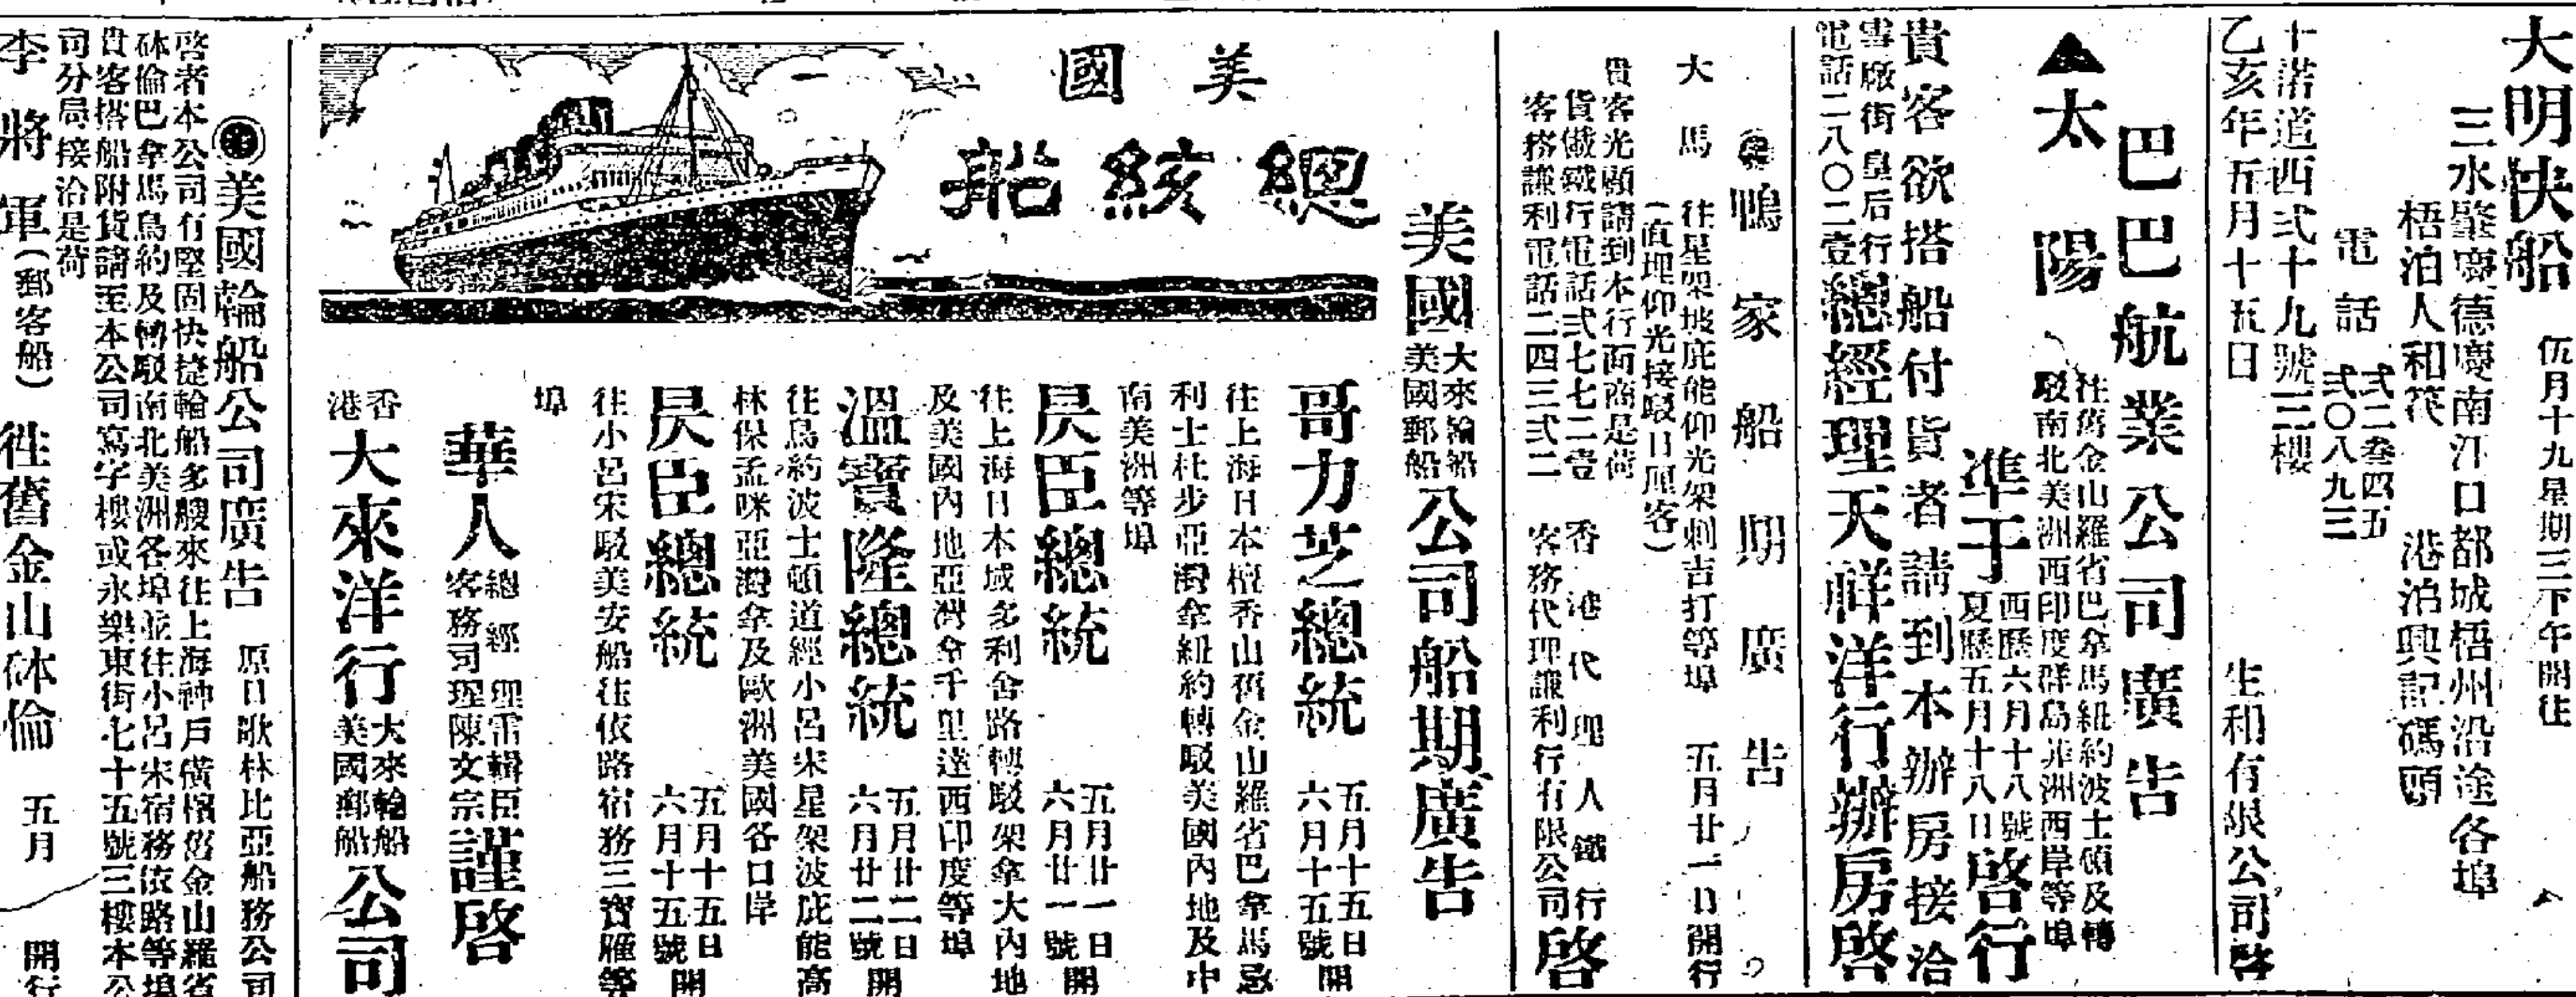 大明快船
伍月十九星期三下午開往
三水肇慶德慶南江口都城梧州沿途各埠
梧泊人和筏
港泊興記碼頭
電話
弍二叁四五
弍〇八九三
干諾道西弍十九號三樓
乙亥年五月十五日
生和有限公司啓
巴巴航業公司廣告
▲太陽
往舊金山羅省巴拿馬紐約波士頓及轉
駁南北美洲西印度群島非洲西岸等埠
準于
西歷六月十八號
夏歷五月十八日
啓行
貴客欲搭船付貨者請到本辦房接洽
雪廠街皇后行
電話二八〇二壹
總經理天祥洋行辦房啓
鴨家船期廣告
大馬
往星架坡庇能仰光架剌吉打等埠
五月廿一日開行
(直埋仰光接駁日厘客)
貴客光顧請到本行面商是荷
貨儎鐵行電話弍七七二壹
客務謙利電話二四三弍二
香港代理人鐵行
客務代理謙利行有限公司
啓
美國
大來輪船
美國郵船
公司船期廣告
美國
總統船
哥力芝總統
五月十五日
六月十五號
開
往上海日本檀香山舊金山羅省巴拿馬忌
利士杜步亞灣拿紐約轉駁美國內地及中
南美洲等埠
昃臣總統
五月廿一日
六月廿一號
開
往上海日本域多利舍路轉駁架拿大內地
及美國內地亞灣拿千里達西印度等埠
溫寶隆總統
五月廿二日
六月廿二號
開
往鳥約波士頓道經小呂宋星架波庇能高
林保孟咪亞灣拿及歐洲美國各口岸
昃臣總統
五月十五日
六月十五號
開
往小呂宋駁美安船往依路宿務三寶雁等
埠
華人
總經理雷輯臣
客務司理陳文宗
謹啓
香港
大來洋行
大來輪船
美國郵船
公司
美國輪船公司廣告
原日歌林比亞船務公司
啓者本公司有堅固快捷輪船多艘來往上海神戶橫檳舊金山羅省
砵倫巴拿馬鳥約及轉駁南北美洲各埠並往小呂宋宿務依路等埠
貴客搭船附貨請至本公司寫字樓或永樂東街七十五號三樓本公
司分局接洽是荷
李將軍(郵客船)
往舊金山砵倫
五月
開行